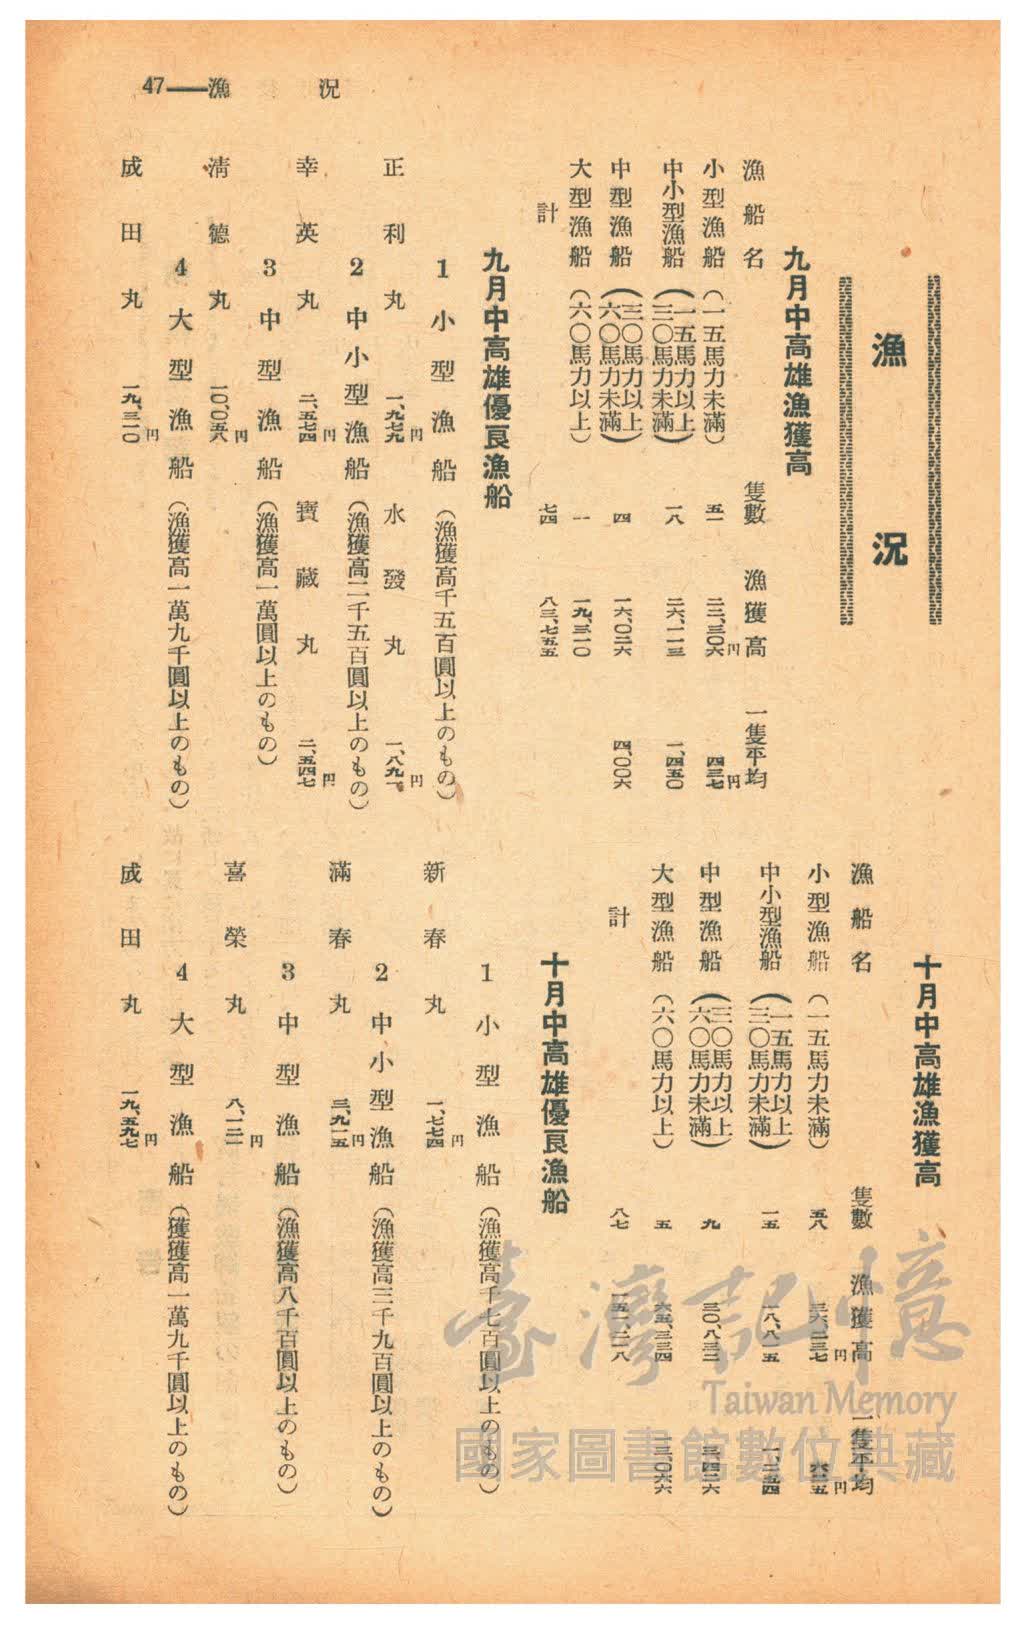 47──漁況
漁況
九月中高雄漁獲高
漁船名 隻數 漁獲高 一隻平均
小型漁船(一五馬力未滿) 五一 二二、三〇六円 四三七円
中小型漁船(一五馬力以上三〇馬力未滿) 一八 二六、一一三 一、四五〇
中型漁船(三〇馬力以上六〇馬力未滿) 四 一六、〇二六 四、〇〇六
大型漁船(六〇馬力以上) 一 一九、三一〇
計 七四 八三、七五五
九月中高雄優良漁船
1 小型漁船(漁獲高千五百圓以上のもの)
正利丸 一、九七九円 水發丸 一、八九一円
2 中小型漁船(漁獲高二千五百圓以上のもの)
幸英丸 二、五七四円 寶藏丸 二、五四七円
3 中型漁船(漁獲高一萬圓以上のもの)
清德丸 一〇、〇五八円
4 大型漁船(漁獲高一萬九千圓以上のもの)
成田丸 一九、三一〇円
十月中高雄漁獲高
漁船名 隻數 漁獲高 一隻平均
小型漁船(一五馬力未滿) 五八 三六、二三七円 六二五円
中小型漁船(一五馬力以上三〇馬力未滿) 一五 一八、八一五 一、二五四
中型漁船(三〇馬力以上六〇馬力未滿) 九 三〇、八三二 三、四二六
大型漁船(六〇馬力以上) 五 六五、三三四 一三、〇六六
計 八七 一五一、二一八
十月中高雄優良漁船
1 小型漁船(漁獲高千七百圓以上のもの)
新春丸 一、七七四円
2 中小型漁船(漁獲高三千九百圓以上のもの)
滿春丸 三、九一五円
3 中型漁船(漁獲高八千百圓以上のもの)
喜榮丸 八、一二一円
4 大型漁船(獲獲高一萬九千圓以上のもの)
成田丸 一九、五九七円
臺灣記憶
Taiwan Memory
國家圖書館數位典藏